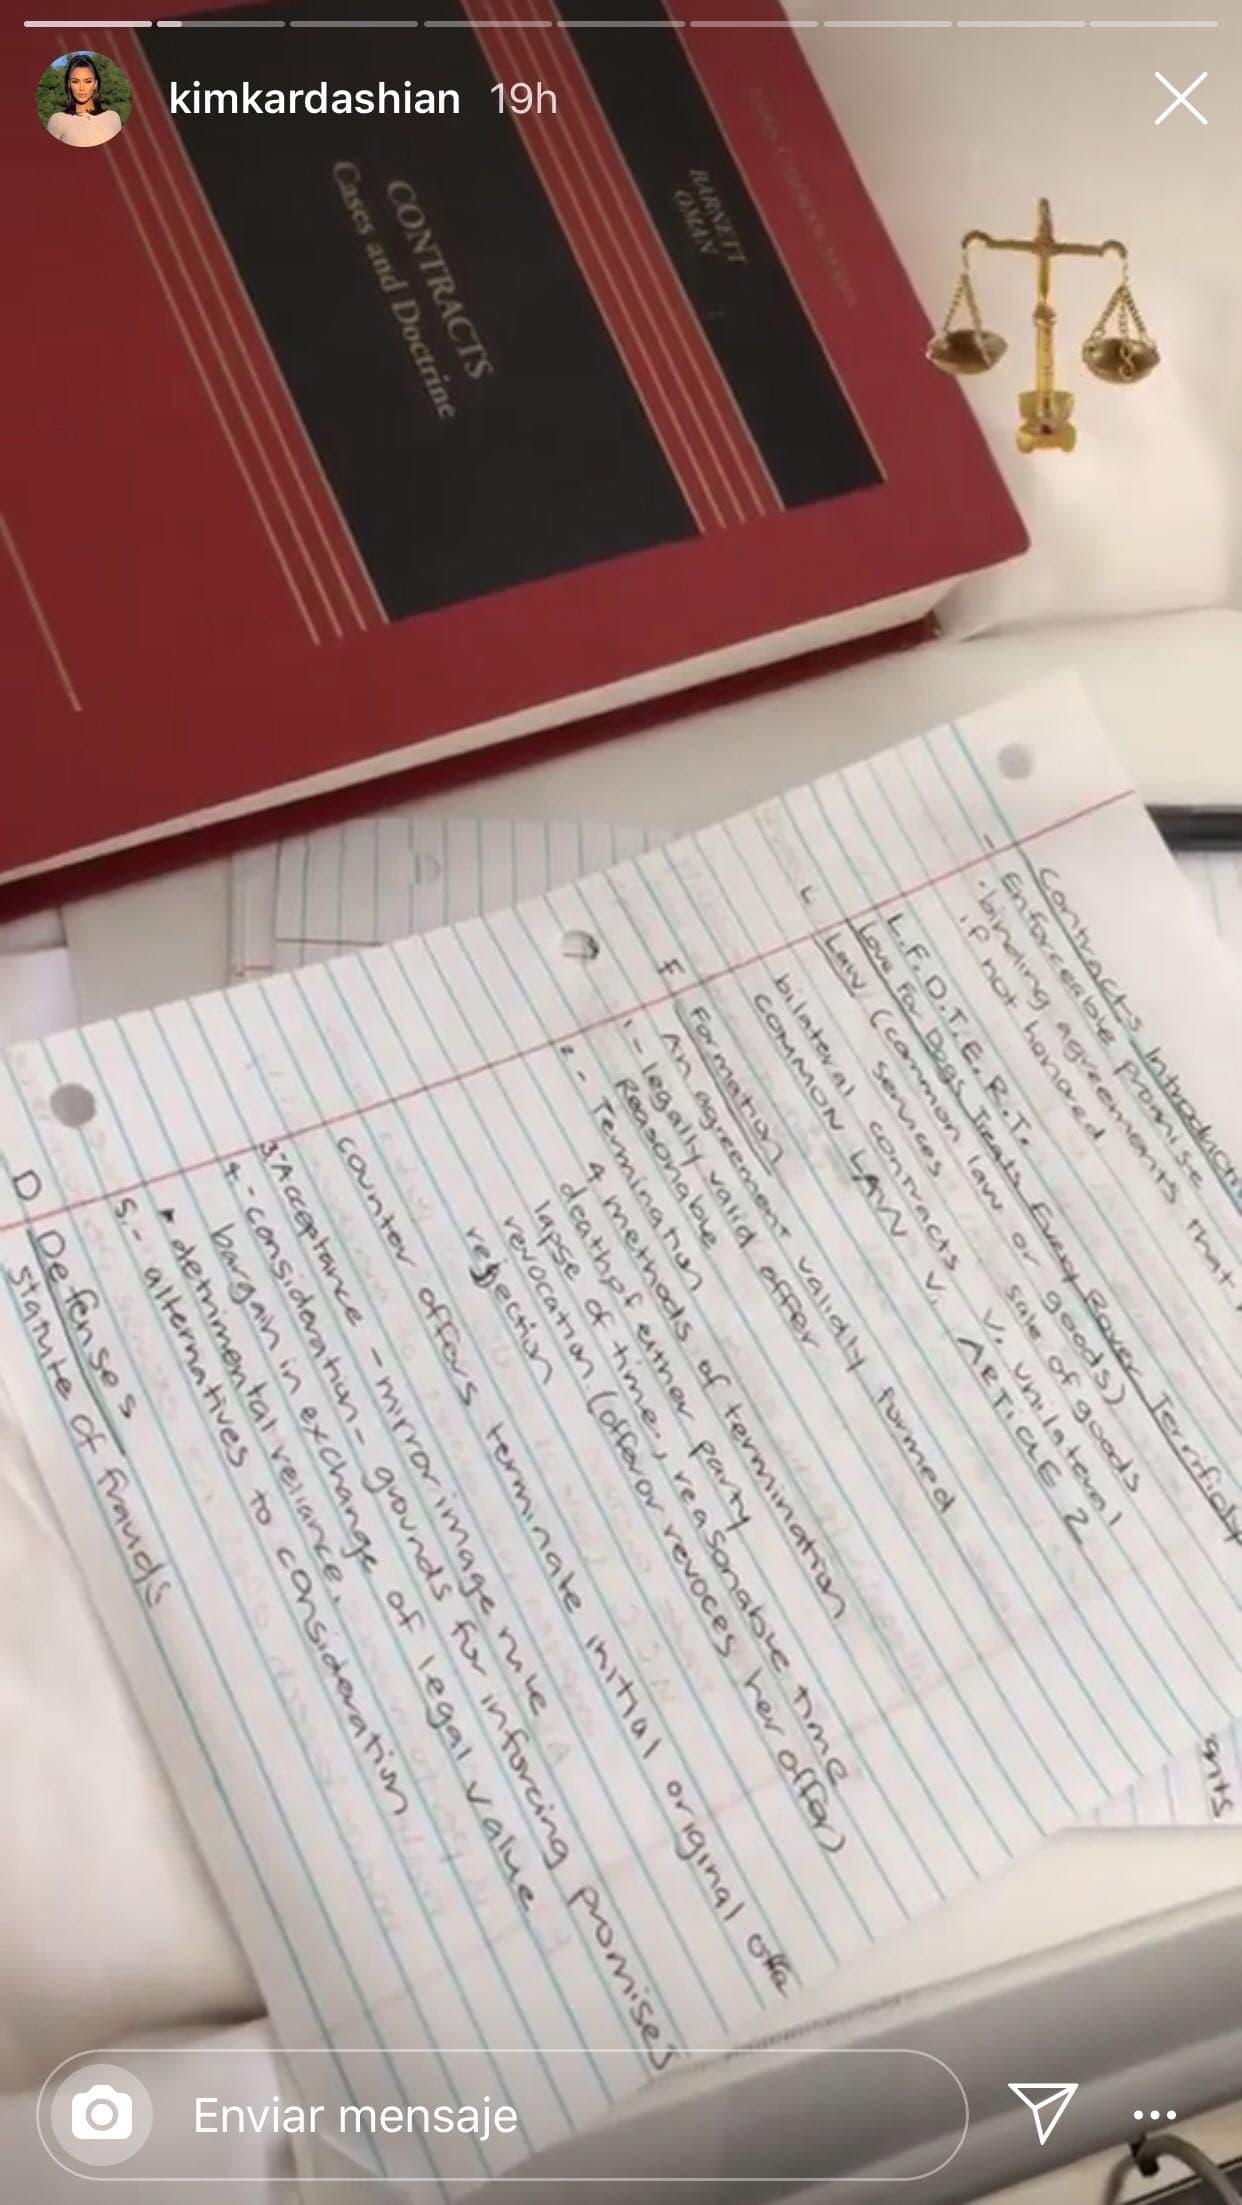 kimkardashian 19h
CONTRACTS
Cases and Doctrine
BARNETT
OMAN
Contracts Introduction
Enforceable promise
• binding agreements that
if not honored
L.F.D.T.E.R.T.
Love For Dogs Treats Every Rover Terrificly
L Law (common law or goods)
services v. sale of goods
bilateral contracts v. unilateral
COMMON LAW v. ARTICLE 2
F Formation
An agreement validly formed
1 - legally valid offer
Reasonable
2 - Termination
4 methods of termination
death of either party
lapse of time, reasonable time
revocation (offeror revoces her offer)
rejection
counter offers terminate initial original offer
3 - Acceptance - mirror image rule
4 - consideration - grounds for inforcing promises
bargain in exchange of legal value
detrimental reliance,
5 - alternatives to consideration
D Defenses
statute of frauds
Enviar mensaje